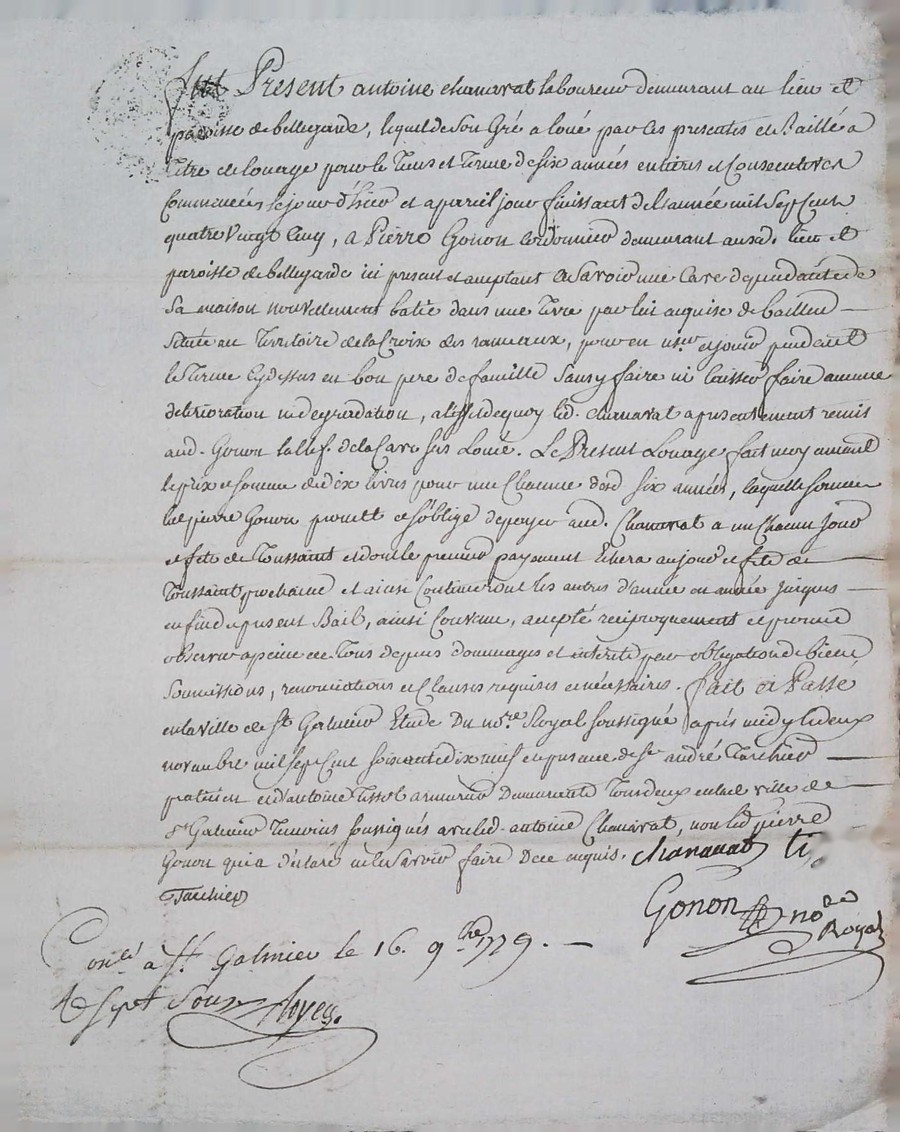 fut Présent antoine chanavat laboureur demeurant au lieu et
paroisse de bellegarde, lequel de Son Gré a loué par ces presentes et Baillé a
titre de louage pour le Tems et Terme de six années entieres et Consecutives
Commencées le jour d'hier et a pareil jour finissant de l'année mil Sept Cent
quatre Vingt Cinq, a Pierre Gonon Cordonnier demeurant aussd. lieu et
paroisse de bellegarde ici present et acceptant a Savoir une Cave dependante de
Sa maison nouvellement batie dans une Terre par lui acquise de bailleu
Située au Territoire de la Croix des rameaux, pour en user et jouir pendant
le Terme Cydessus en bon pere de famille Sans y faire ni laisser faire aucune
deterioration ni degradation, a l'effet de quoy led. chanavat a presentement remis
aud. Gonon la clef de la Cave Sus Loué. Le Présent Louage fait moyennant
le prix et somme de dix livres pour une Chacune desd six années, laquelle somme
led pierre Gonon promett et s'oblige de payer aud. Chanavat a un Chacun Jour
et fete de Toussaint et dont le premier payement Echera au jour et fete de
Toussaint prochaine et ainsi Continueront les autres d'année en année jusques
en fin du present Bail, ainsi Convenu, accepté reciproquement et promis
observer a peine de Tous depens dommages et interets par obligation de biens
Soumissions, renonciations et Clauses requises et nécessaires. fait et Passé
en la ville de St Galmier Etude Du nore Royal soussigné après midy le deux
novembre mil Sept Cent soixante dix neuf en presence de sr andré Tarchier
praticien et d'antoine Tissot armurier Demeurants Tous deux en lad ville de
St Galmier Temoins soussignés avec led. antoine Chanavat, non led pierre
Gonon qui a declaré ne le Savoir faire De ce enquis. chanavat
Tarchier
Gonon nore
Royal
Conlé a St Galmier le 16. 9bre 1779.
R sept Sous